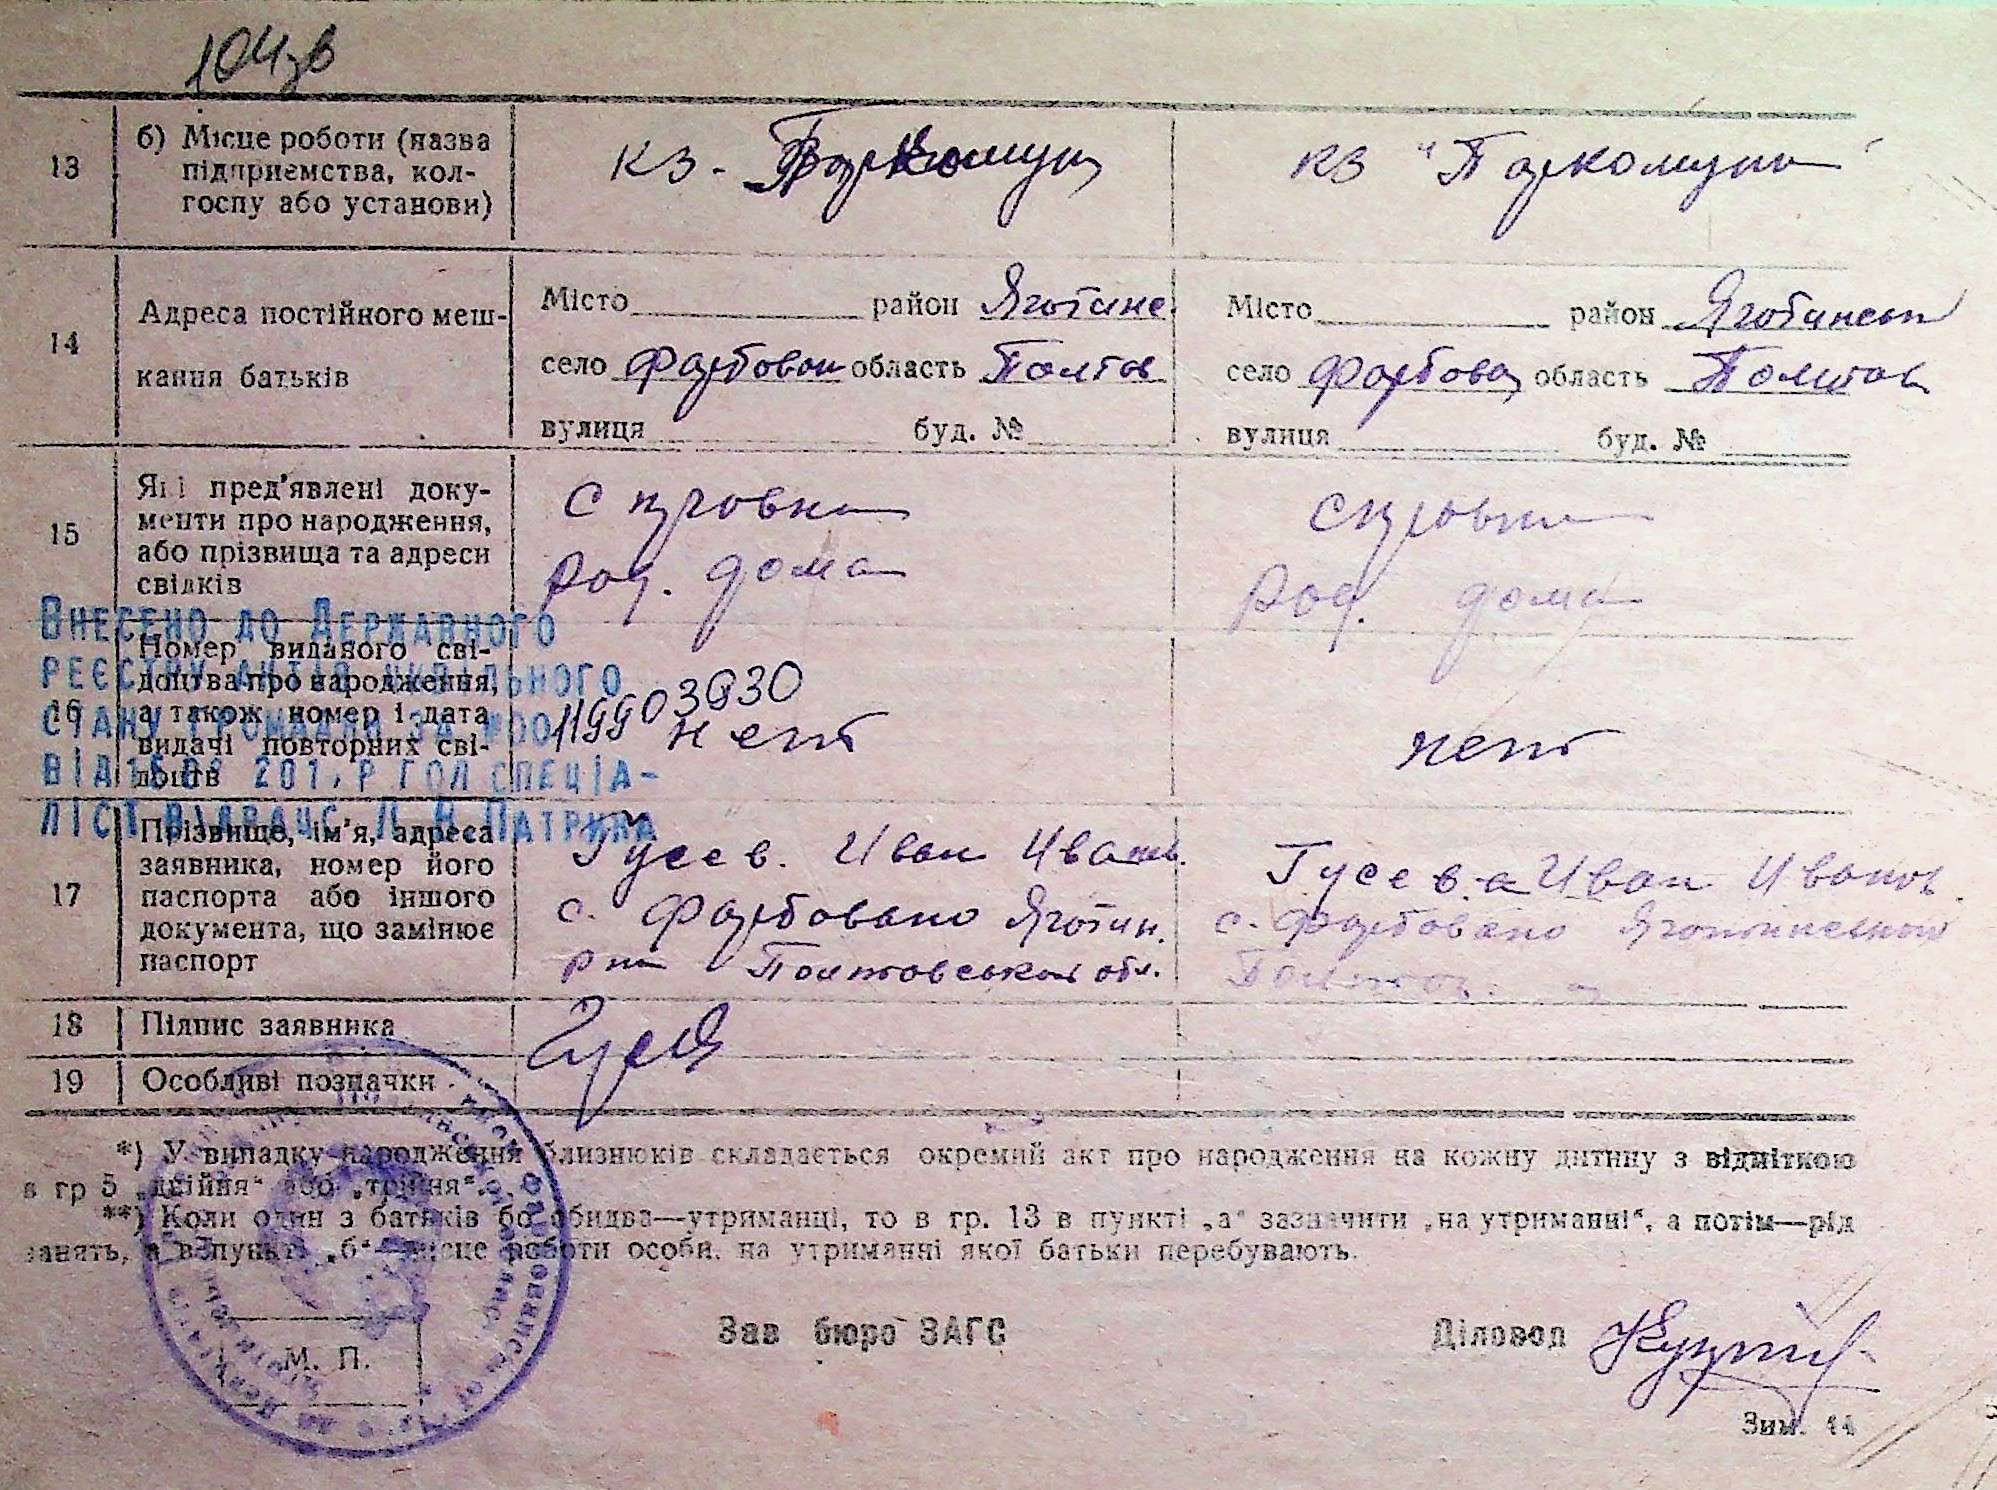 104зв
13
б) Місце роботи (назва
підприємства, кол-
госпу або установи)
КЗ - Паркомун
КЗ "Паркомуна"
14
Адреса постійного меш-
кання батьків
Місто район Яготинс.
село Фарбован область Полтов
вулиця буд. №
Місто район Яготинськ
село Фарбова область Полтов
вулиця буд. №
15
Які пред'явлені доку-
менти про народження,
або прізвища та адреси
свідків
Справка
род. дома
Справка
род. дома
Внесено до Державного
реєстру актів цивільного
стану громадян за №00119903930
від 201 р гол спеціа-
ліст Патрика
16
Номер виданого сві-
доцтва про народження,
а також номер і дата
видачі повторних сві-
доцтв
нет
нет
17
Прізвище, ім'я, адреса
заявника, номер його
паспорта або іншого
документа, що замінює
паспорт
Гусев. Иван Иванов.
с. Фарбовано Яготин.
рна Полтовськой обл.
Гусев.а Иван Иванов
с. Фарбовано Яготинской
Полтов.
18
Підпис заявника
Гусев
19
Особливі позначки
*) У випадку народження близнюків складається окремий акт про народження на кожну дитину з відміткою
в гр 5 „двійня“ або „трійня“.
**) Коли один з батьків бо обидва—утриманці, то в гр. 13 в пункті „а“ зазначити „на утриманні“, а потім—рід
занять, а в пункті „б“—місце роботи особи, на утриманні якої батьки перебувають.
М. П.
Зав бюро ЗАГС
Діловод
Зим. 44